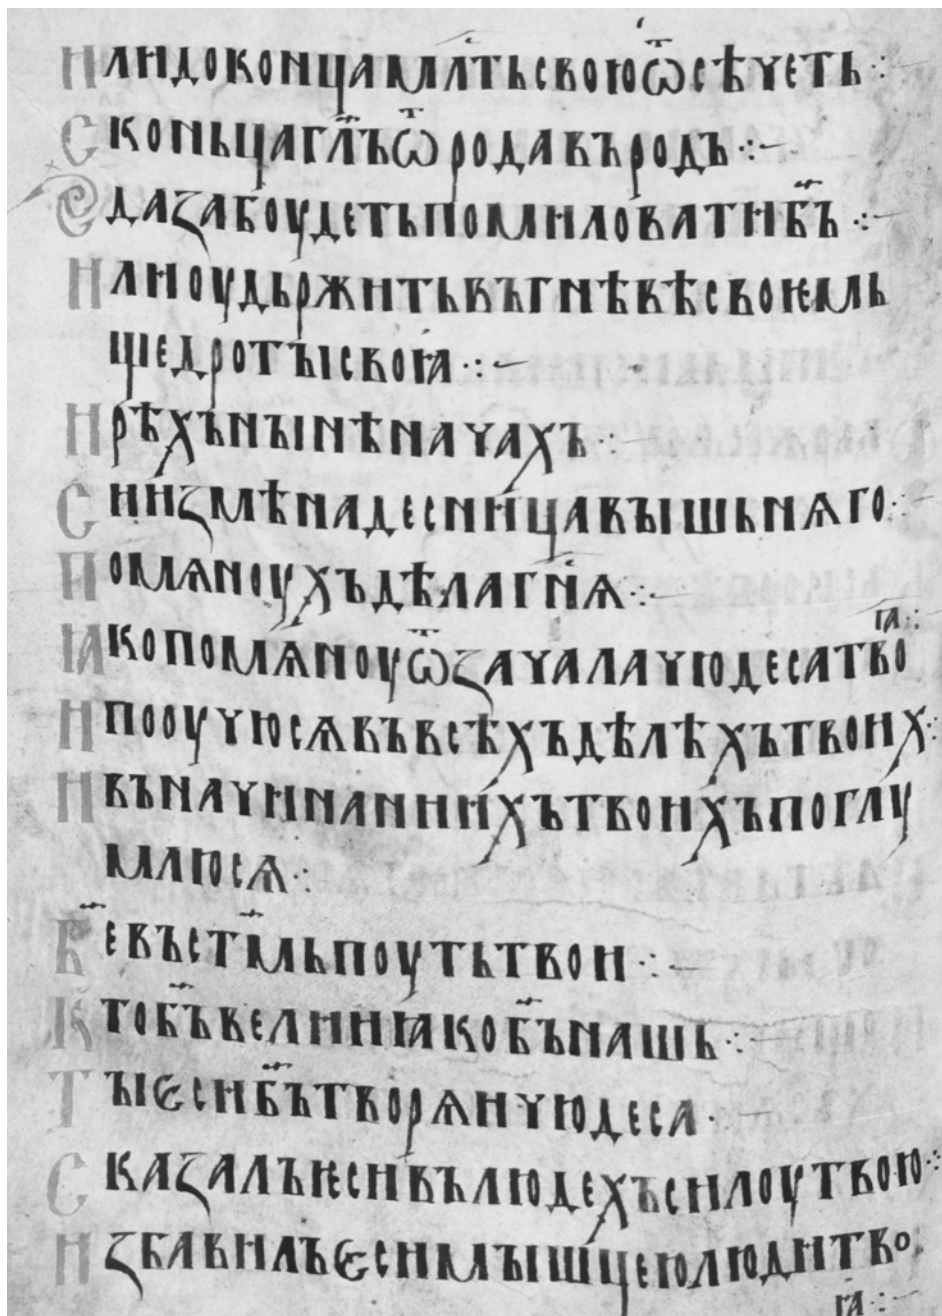 Илидоконцамл҃тьсвоюѿсѣчеть⁘
Сконьцагл҃ъѿродавъродъ⁘–
Єдазабоудетьпомиловатиб҃ъ⁘–
Илиоудьржитьвъгнѣвѣсвоѥмь
щедротъісвоꙗ⁘–
Ирѣхънъінѣначахъ⁘–
Сиизмѣнадесницавъішьнѧго⁘–
Помѧноухъдѣлагн҃ѧ⁘–
Ꙗкопомѧноуѿзачалачюдесатво
ꙗ⁘
Ипооучюсѧвъвсѣхъдѣлѣхътвоих⁘
Ивъначинаниихътвоихъпоглу
млюсѧ⁘
Б҃евъст҃мьпоутьтвои⁘–
Ктоб҃ъвелииꙗкоб҃ънашь⁘–
Тъіѥсиб҃ътворѧичюдеса·–
Сказалъѥсивълюдехъсилоутвою⁘
Избавилъѥсимъішцеюлюдитво
ꙗ⁘–